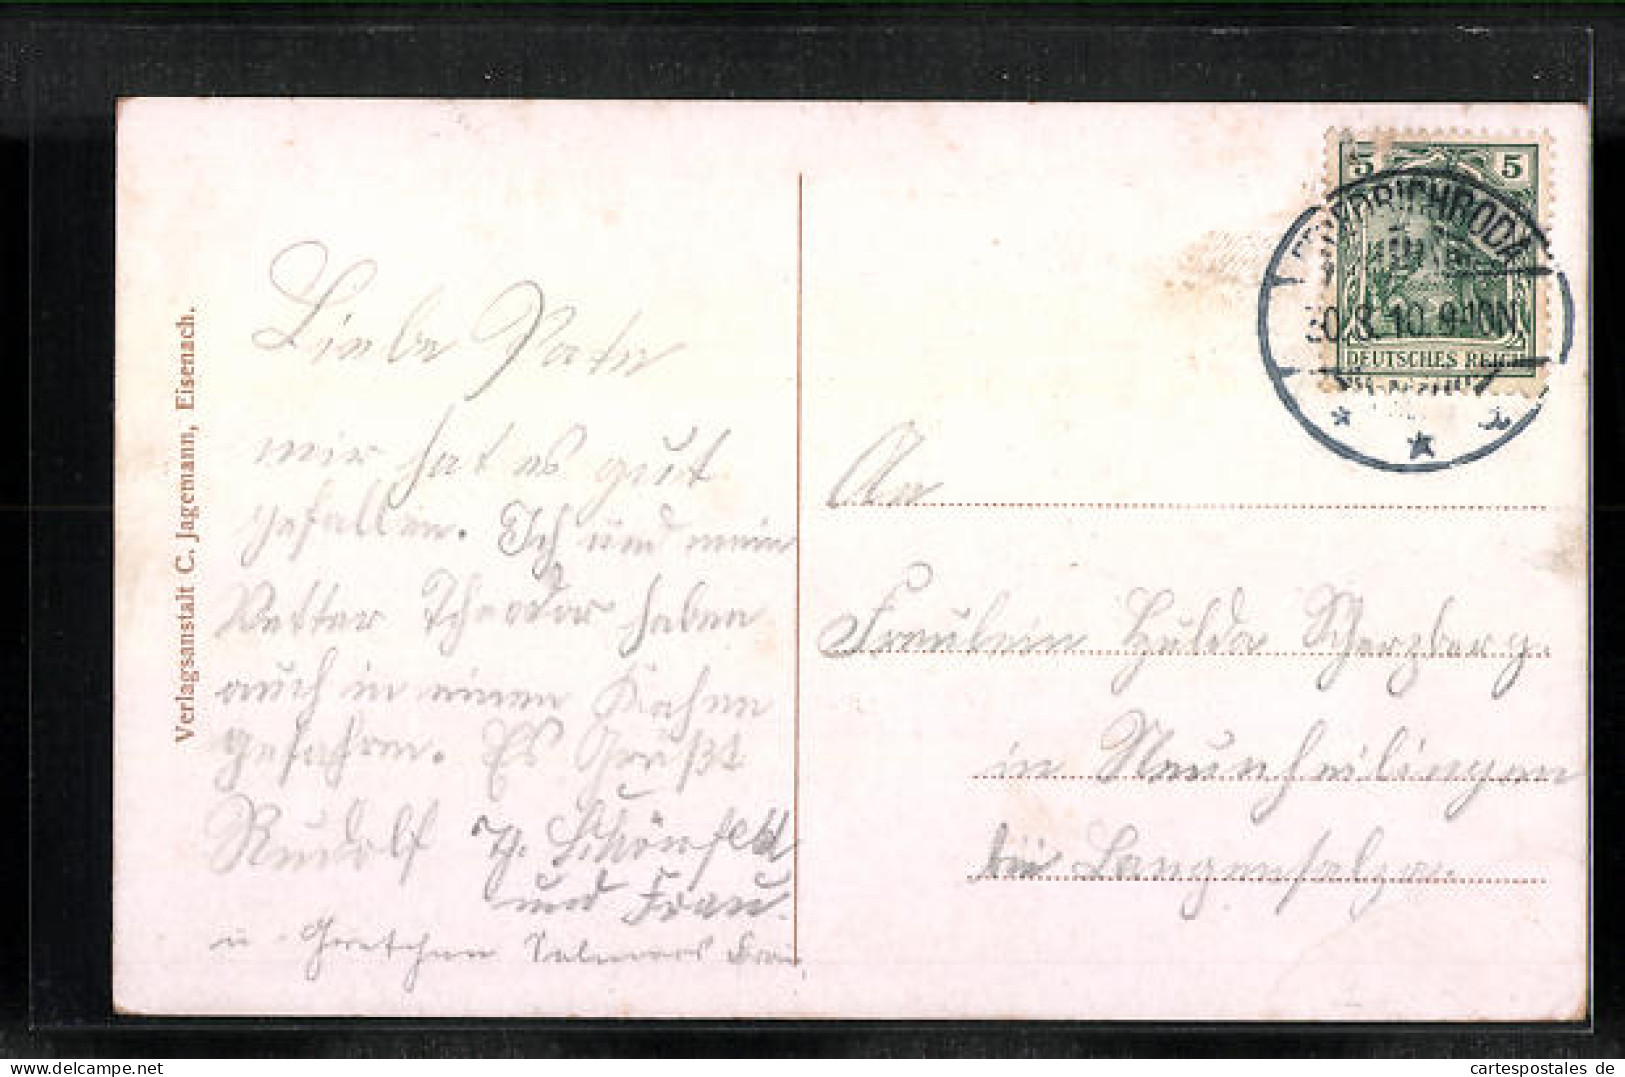 Verlagsanstalt C. Jagemann, Eisenach.
Liebe Pate
mir hat es gut
gefallen. Ich und mein
Vetter Theodor haben
auch in einen Kahn
gefahren. Es Grüßt
Rudolf Th. Schönfeld
und Frau.
u. Gretchen
5 5
FRIEDRICHRODA
30.8.10.9-10N
DEUTSCHES REICH
An
Fräulein Hulda Scherzberg.
in Neunheilingen
bei Langensalza.
cartespostales de